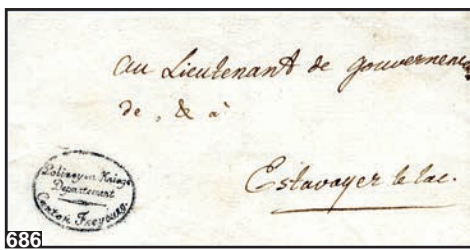 au Lieutenant de gouvernement
de, & à
Estavayer le lac.
Polizey en Kriegs
Departement
Canton Freyburg.
686